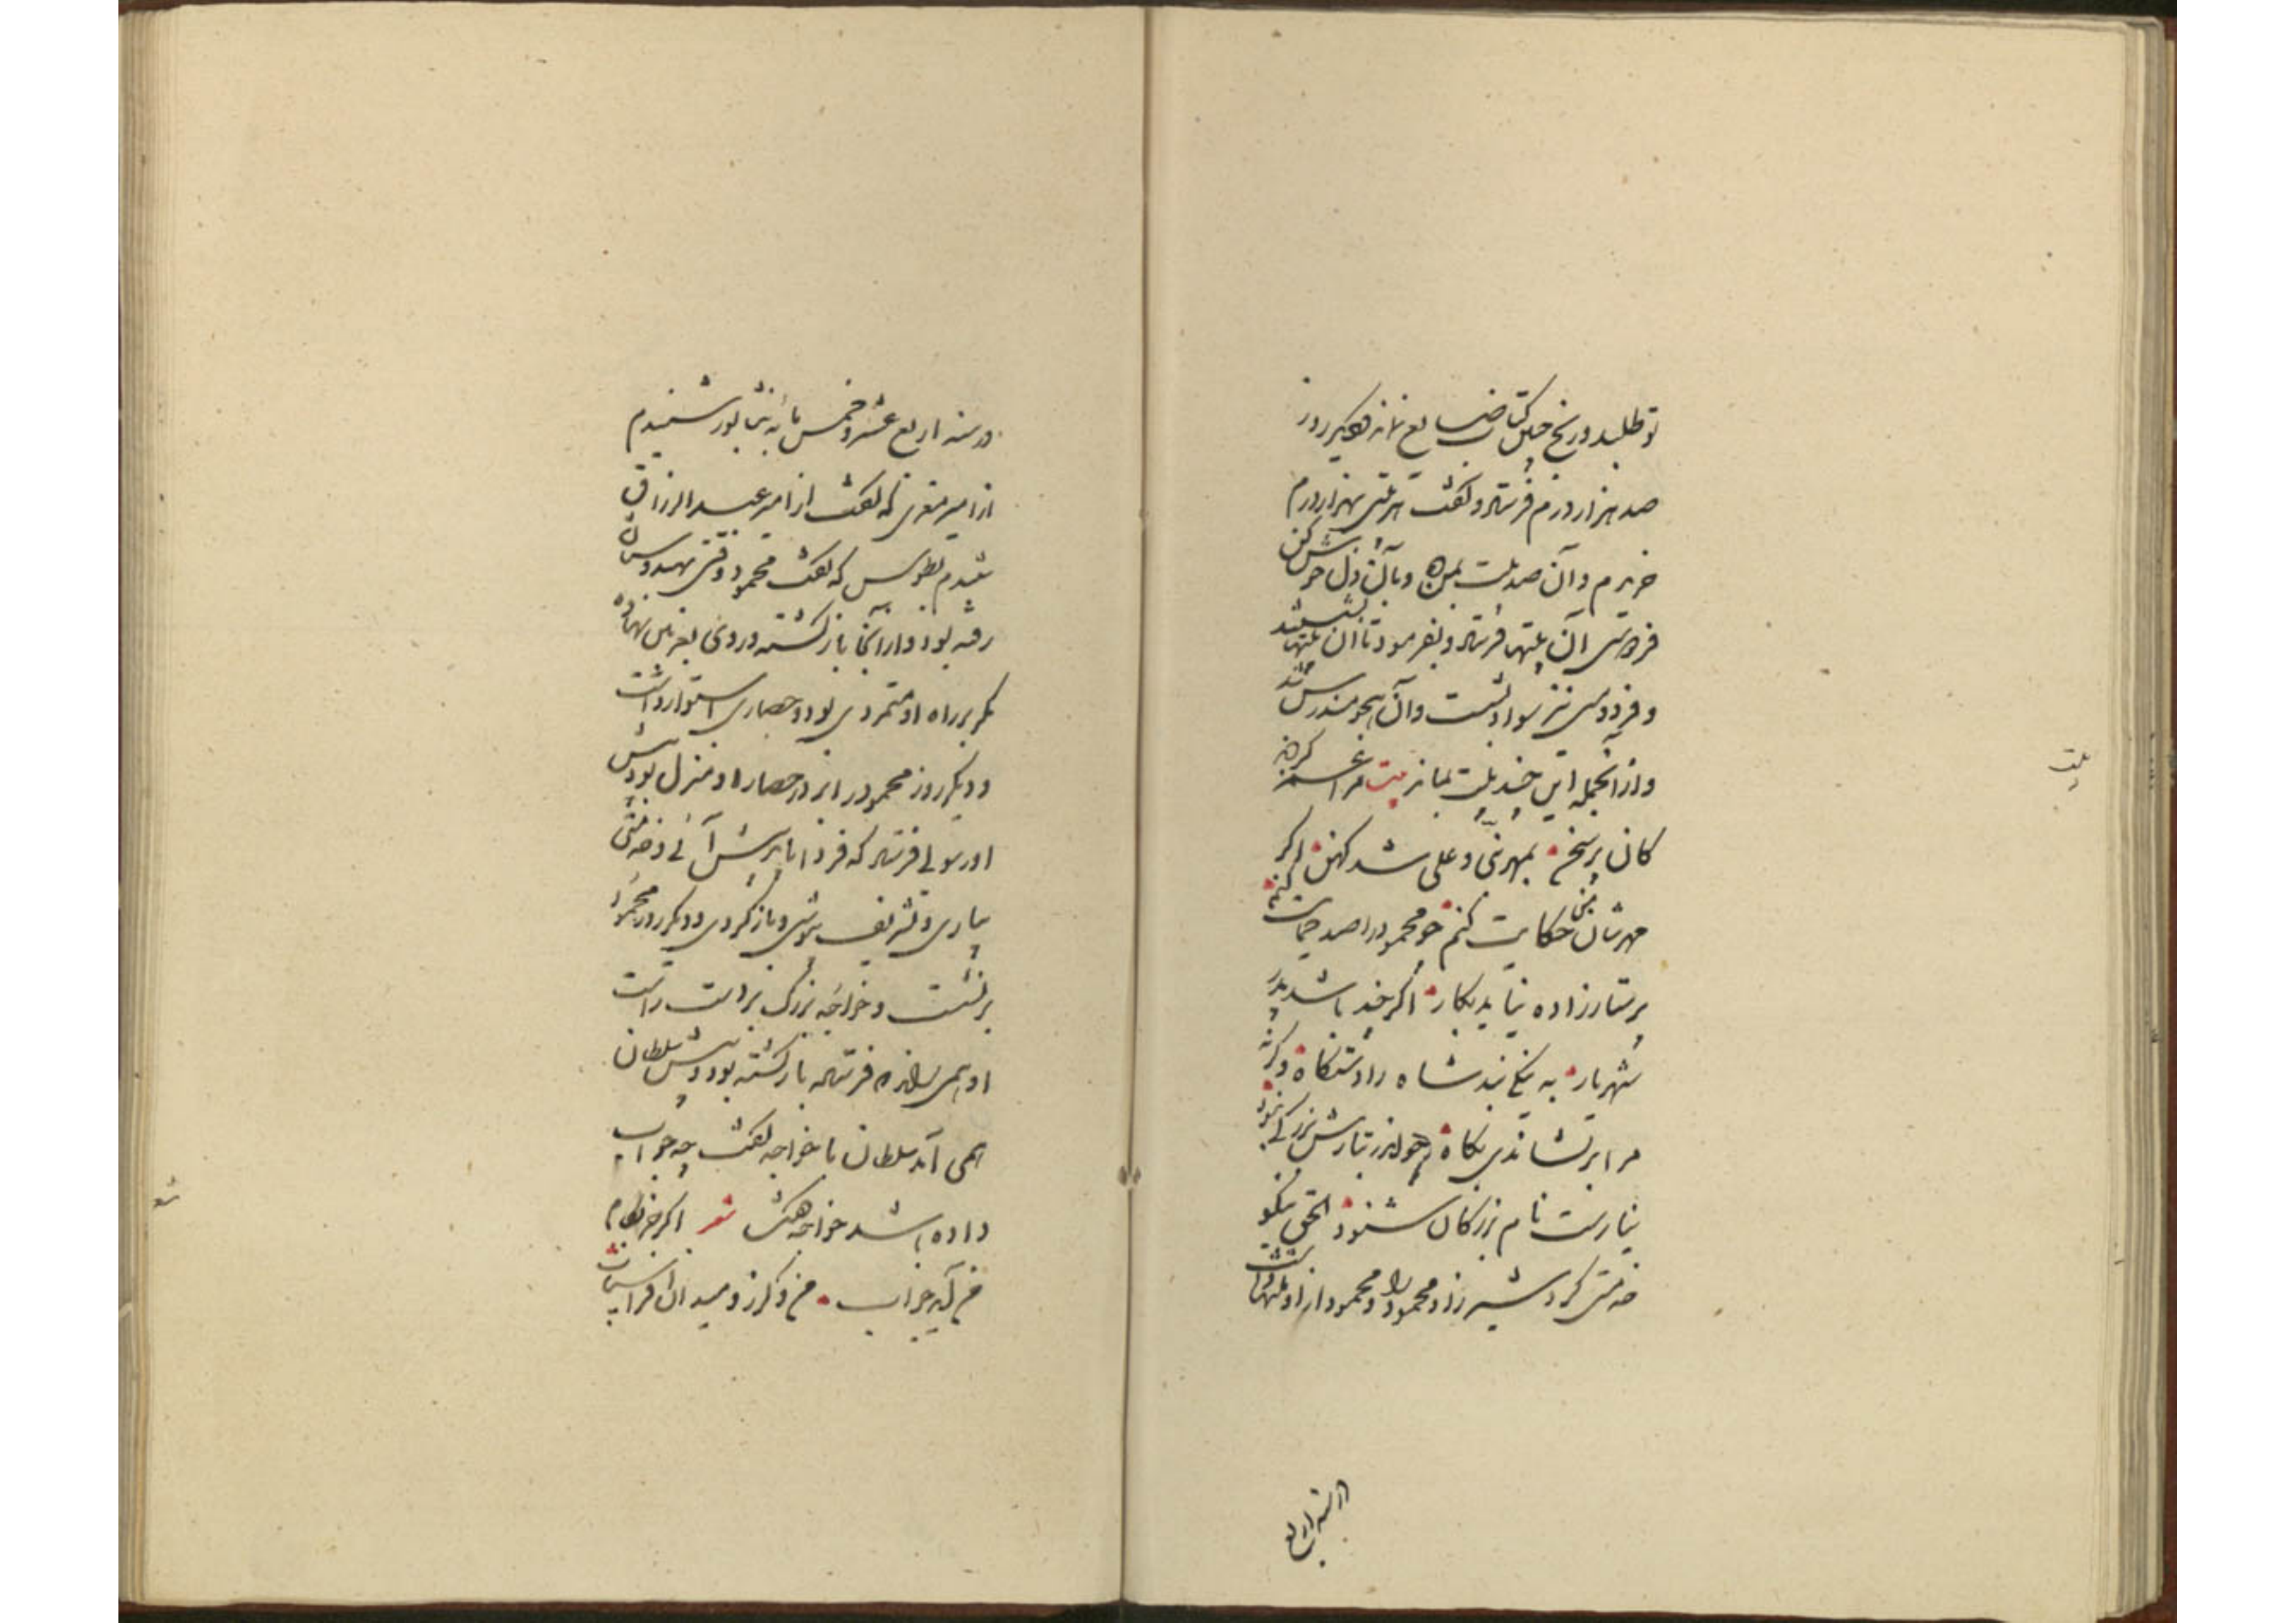 تو طلبد و رنج چنین کتاب ضایع نماند دیگر روز
صد هزار درم فرستاد و گفت هر بیتی بهزار درم
خریدم و آن صد بیت بمن ده و با آن دل خوش کن
فردوسی آن بیتها فرستاد و بفرمود تا آن بیتها بشستند
و فردوسی نیز سواد بشست و آن هجو مندرس شد
و از آنجمله این چند بیت بماند بیت مرا غمز کردند
کان پر سخن بمهر نبی و علی شد کهن اگر
مهرشان من حکایت کنم چو محمود را صد حمایت کنم
پرستار زاده نیاید بکار اگر چند باشد پدر
شهریار به نیکی نبد شاه را دستگاه وگرنه
مرا بر نشاندی بگاه چو اندر تبارش بزرگی نبود
نیارست نام بزرگان شنود الحق نیکو
خدمتی کرد شهرزاد محمود را و محمود از او منتها داشت
در سنه اربع
بیت
در سنه اربع عشر و خمس مایه بنشابور شنیدم
از امیر معزی که گفت از امیر عبد الرزاق
شنیدم بطوس که گفت محمود وقتی بهندوستان
رفته بود و از آنجا بازگشته و روی بغزنین نهاده
مگر بر راه او متمردی بود و حصاری استوار داشت
و دیگر روز محمود را بر در حصار او منزل بود پیش
او رسولی فرستاد که فردا باید پیش آئی و خدمتی
بیاری و تشریف بپوشی و باز گردی و دیگر روز محمود
بر نشست و خواجه بزرگ بر دست راست
او همی راند که فرستاده بازگشته بود و پیش سلطان
همی آمد سلطان با خواجه گفت چه جواب
داده باشد خواجه گفت شعر اگر جز بکام
من آید جواب من و گرز و میدان و افراسیاب